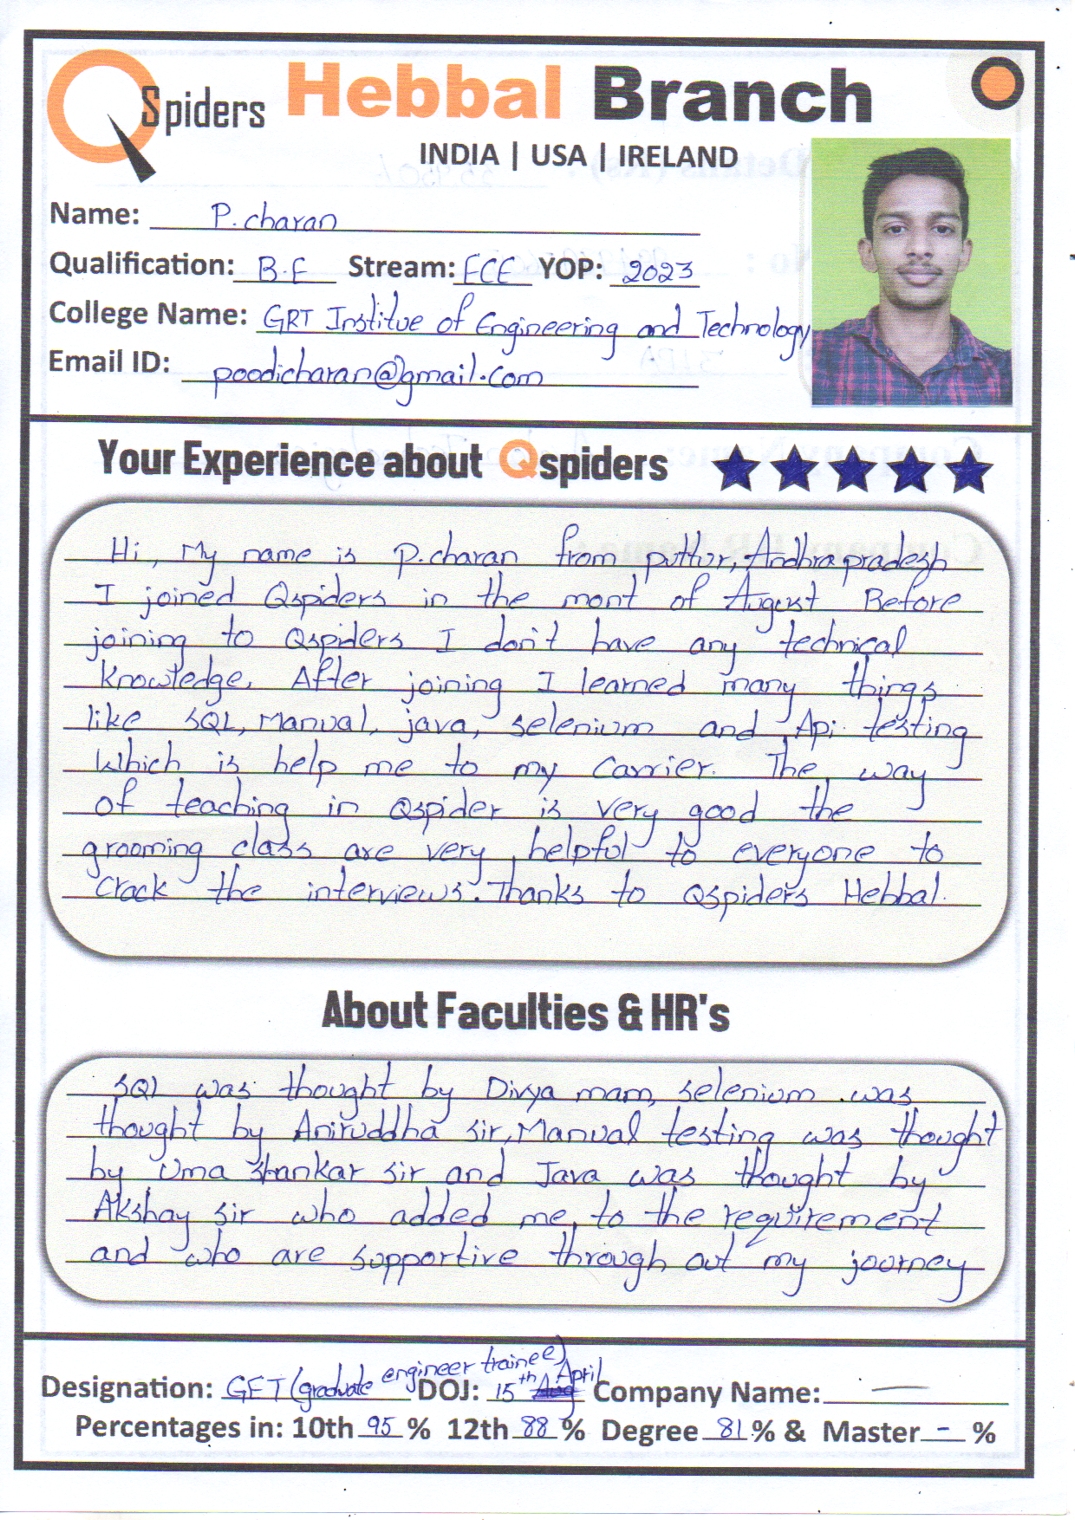 Qspiders Hebbal Branch
INDIA | USA | IRELAND
Name: P. charan
Qualification: B.E Stream: ECE YOP: 2023
College Name: GRT Institue of Engineering and Technology
Email ID: poodicharan@gmail.com
Your Experience about Qspiders
Hi, My name is P.charan from puttur, Andhra pradesh
I joined Qspiders in the mont of August Before
joining to Qspiders I don't have any technical
knowledge. After joining I learned many things
like SQL, Manual, java, selenium and Api testing
Which is help me to my Carrier. The way
of teaching in Qspider is very good the
grooming class are very helpful to everyone to
crack the interviews. Thanks to Qspiders Hebbal.
About Faculties & HR's
SQL was thought by Divya mam, selenium was
thought by Aniruddha sir, Manual testing was thought
by Uma shankar sir and Java was thought by
Akshay sir who added me to the requirement
and who are supportive through out my journey
Designation: GET (graduate engineer trainee) DOJ: 15th April Company Name: —
Percentages in: 10th 95 % 12th 88 % Degree 81 % & Master - %